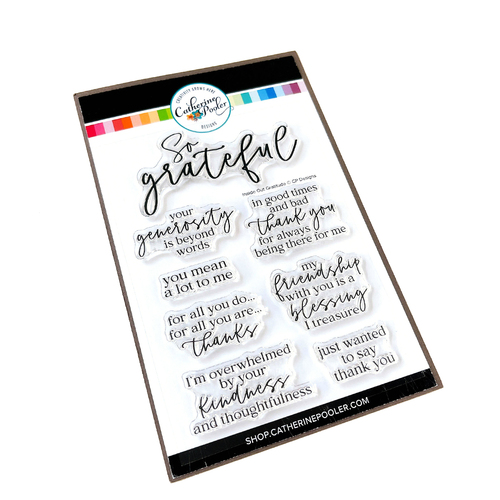 CREATIVITY GROWS HERE
Catherine
Pooler
DESIGNS
So
grateful
Holdin' Out Gratitude © CP Designs
your
generosity
is beyond
words
in good times
and bad
thank you
for always
being there for me
you mean
a lot to me
my
friendship
with you is a
blessing
I treasure
for all you do...
for all you are...
thanks
just wanted
to say
thank you
I'm overwhelmed
by your
kindness
and thoughtfulness
SHOP.CATHERINEPOOLER.COM